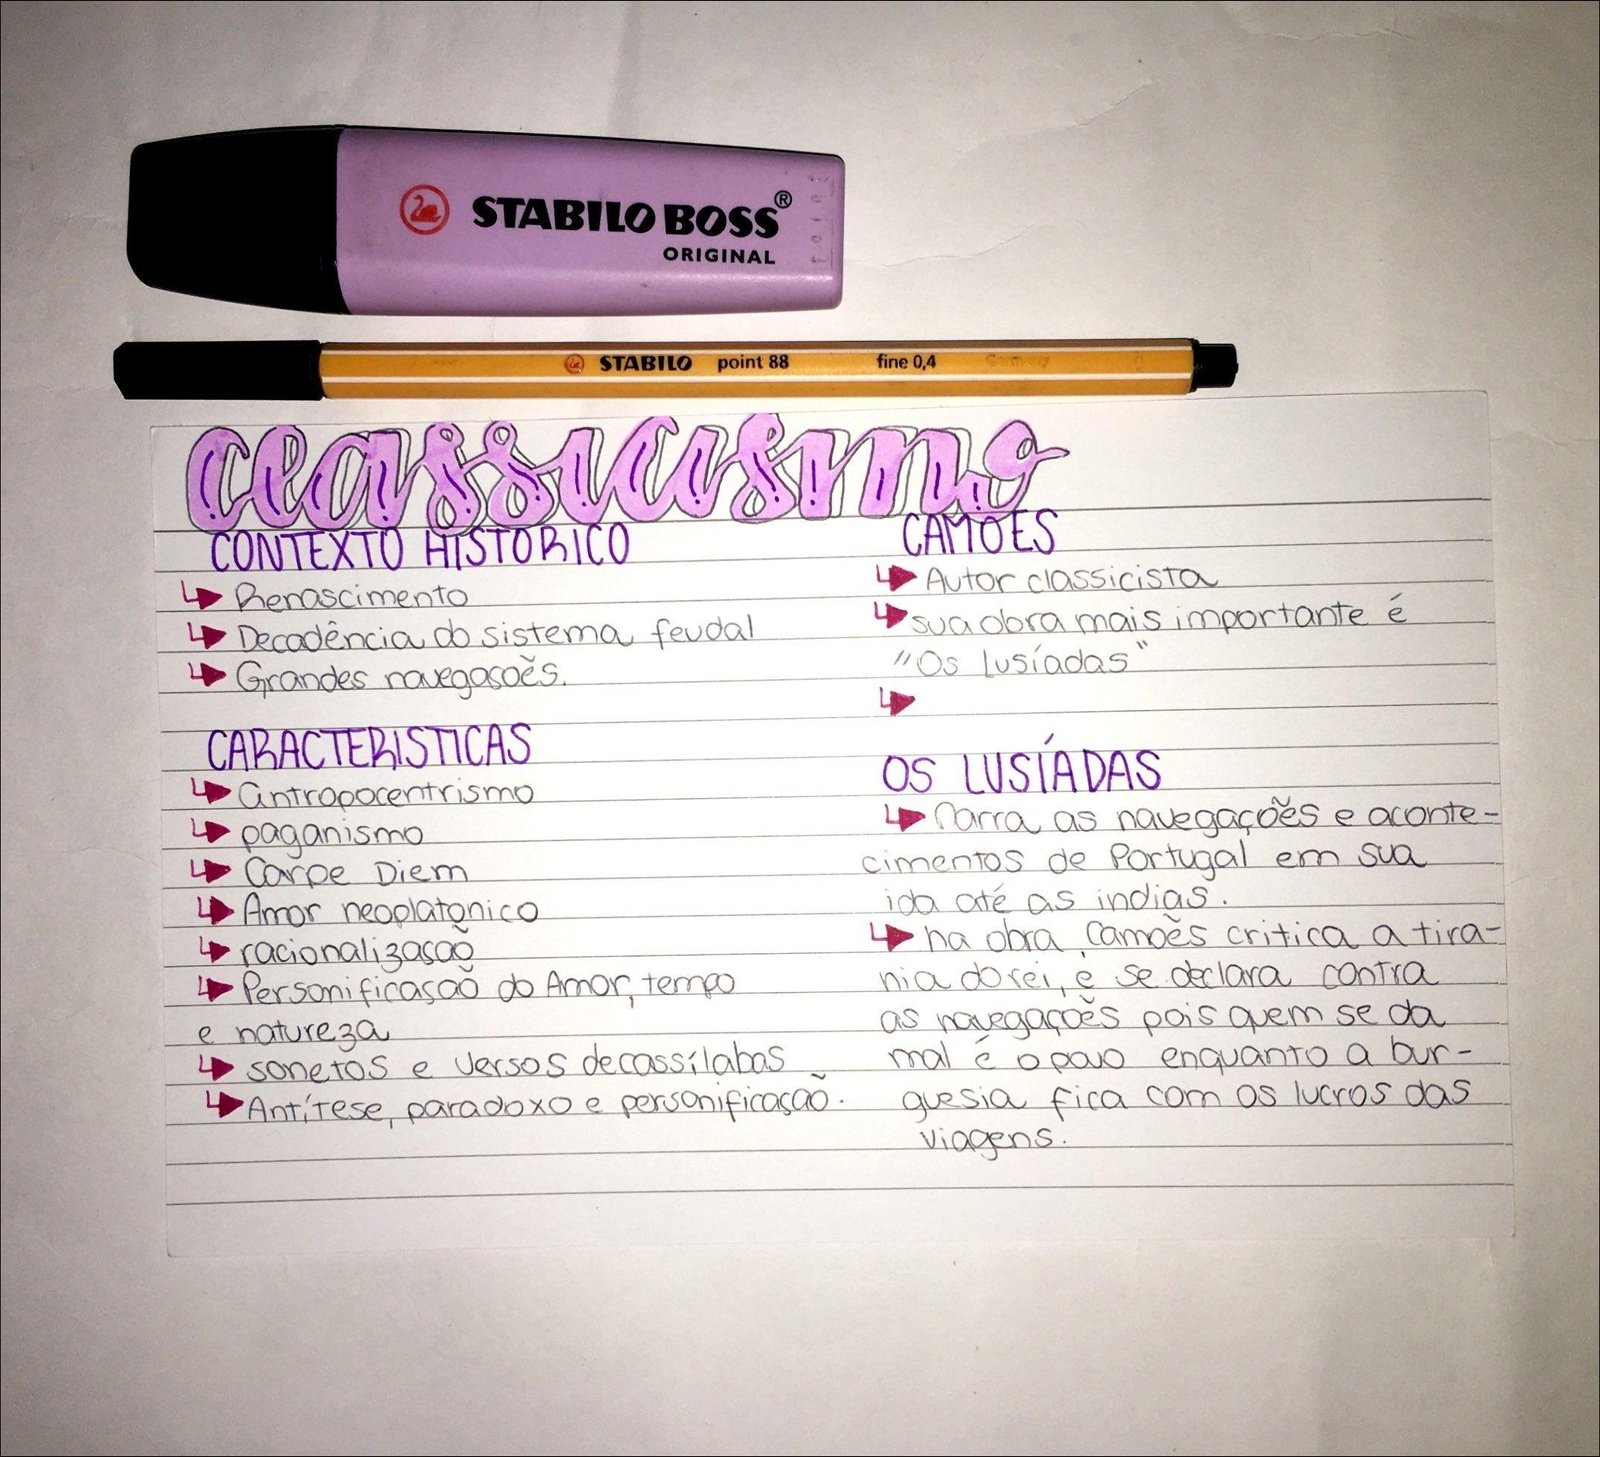 STABILO BOSS®
ORIGINAL
STABILO point 88 fine 0,4
classicismo
CONTEXTO HISTÓRICO
Renascimento
Decadência do sistema feudal
Grandes navegasoẽs.
CARACTERISTICAS
antropocentrismo
paganismo
Carpe Diem
Amor neoplatonico
racionalizasão
Personificasão do Amor, tempo
e natureza
sonetos e versos decassílabas
Antítese, paradoxo e personificação.
CAMÕES
Autor classicista
sua obra mais importante é
"Os Lusíadas"
OS LUSÍADAS
Narra as navegações e aconte-
cimentos de Portugal em sua
ida até as indias.
na obra Camoẽs critica a tira-
nia do rei, e se declara contra
as navegaçoẽs pois quem se da
mal é o povo enquanto a bur-
guesia fica com os lucros das
viagens.